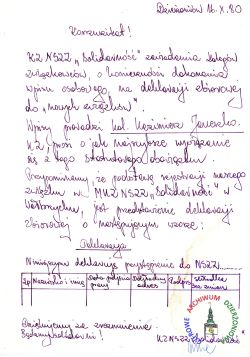 Dzierżoniów 16.X.80
Komunikat!
KZ NSZZ „Solidarność" zawiadamia kolegów
związkowców, o konieczności dokonania
wpisu osobowego, na deklaracji zbiorowej
do „nowych związków".
Wpisy prowadzi kol. Kazimierz
KZ prosi o jak najszybsze wywiązanie
się z tego statutowego obowiązku.
Przypominamy, że podstawą rejestracji naszego
związku w MKZ NSZZ „Solidarność" w
Wałbrzychu, jest przedstawienie deklaracji
zbiorowej o następującym wzorze:
Deklaracja
Niniejszym deklaruję przystąpienie do NSZZ
Lp Nazwisko i imię Data podjęcia pracy adres Podpis
Dziękujemy za zrozumienie
KZ NSZZ Solidarność
ARCHIWUM